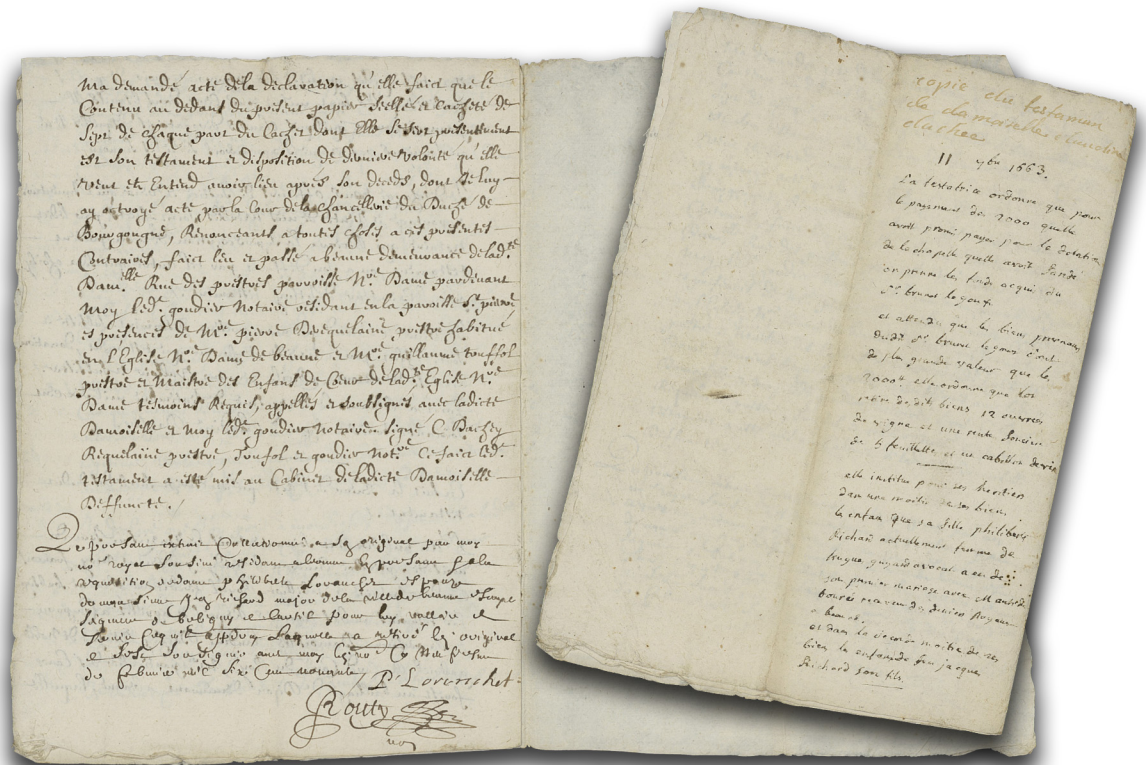 Ma demandé acte dela declaration qu'elle faict que le
Contenu au dedant du present papier seellé et Cacheté de
Sept de chaque part du Cachet dont Elle se sert presentement
est son testament et disposition de derniere volonté qu'elle
veut et Entend avoir lieu apres son decedz, dont Je luy
ay octroyé acte par la Cour dela Chancellerie du Duché de
Bourgongne, Renonceants a toutes choses a ces presentes
Contraires, faict leu et passé a beaune demeurance de lad.te
Dam.elle Rue des prestres parroisse N.re Dame pardevant
Moy led.t goudier Notaire residant en la paroisse S.t pierre
es presences de M.re pierre Requelaine prestre habitué
en l'Eglise N.re Dame de beaune et M.re guillaume Touffol
prestre et Maistre des Enfans de Coeur de lad.te Eglise N.re
Dame tesmoins Requis, appellés et soubsignés avec ladicte
Damoiselle et Moy led.t goudier Notaire. Signé C. Bachey
Requelaine prestre, Toufol et goudier Not.re Ce faict led.t
testament a esté mis au Cabinet de ladicte Damoiselle
Deffuncte.
Le presant extrait a son original par moy
no.re royal residant a beaune le presant a la
requisition dedame philiberte Lorenchet espouse
de richard major dela ville de beaune
seigneur de boligny et pour luy valloir et
servir laquelle a retiré l'original
et s'est soubsignée avec moy
de febvrier mil six Cent nonante P Lorenchet
Routy
no.re
copie du testaman
de damoiselle claudine
bachee
11 9bre 1663.
La testatrice ordonne que pour
le payement de 2000 quelle
avoit promi payer pour la dotation
de la chapelle quelle avoit fondé
on prenne les fonds acqui du
S.r brunet legoux
et attendu que les biens provenans
dudit S.r brunet legoux sont
de plus grande valeur que les
2000.tt elle ordonne que
de dits biens 12 ouvrees
de vigne et une rente fonciere
de 4 feuillette et un cabillon de vin
elle institue pour ses heritiers
dans une moitié de ses biens
les enfans que sa fille philiberte
Richard actuellement femme de
hugue guyard avocat a eu de
son premier mariage avec M. andré
bourée receveur des deniers Royaux
a beaune.
et dans la seconde moitié de ses
biens les enfans de feu jacque
Richard son fils.